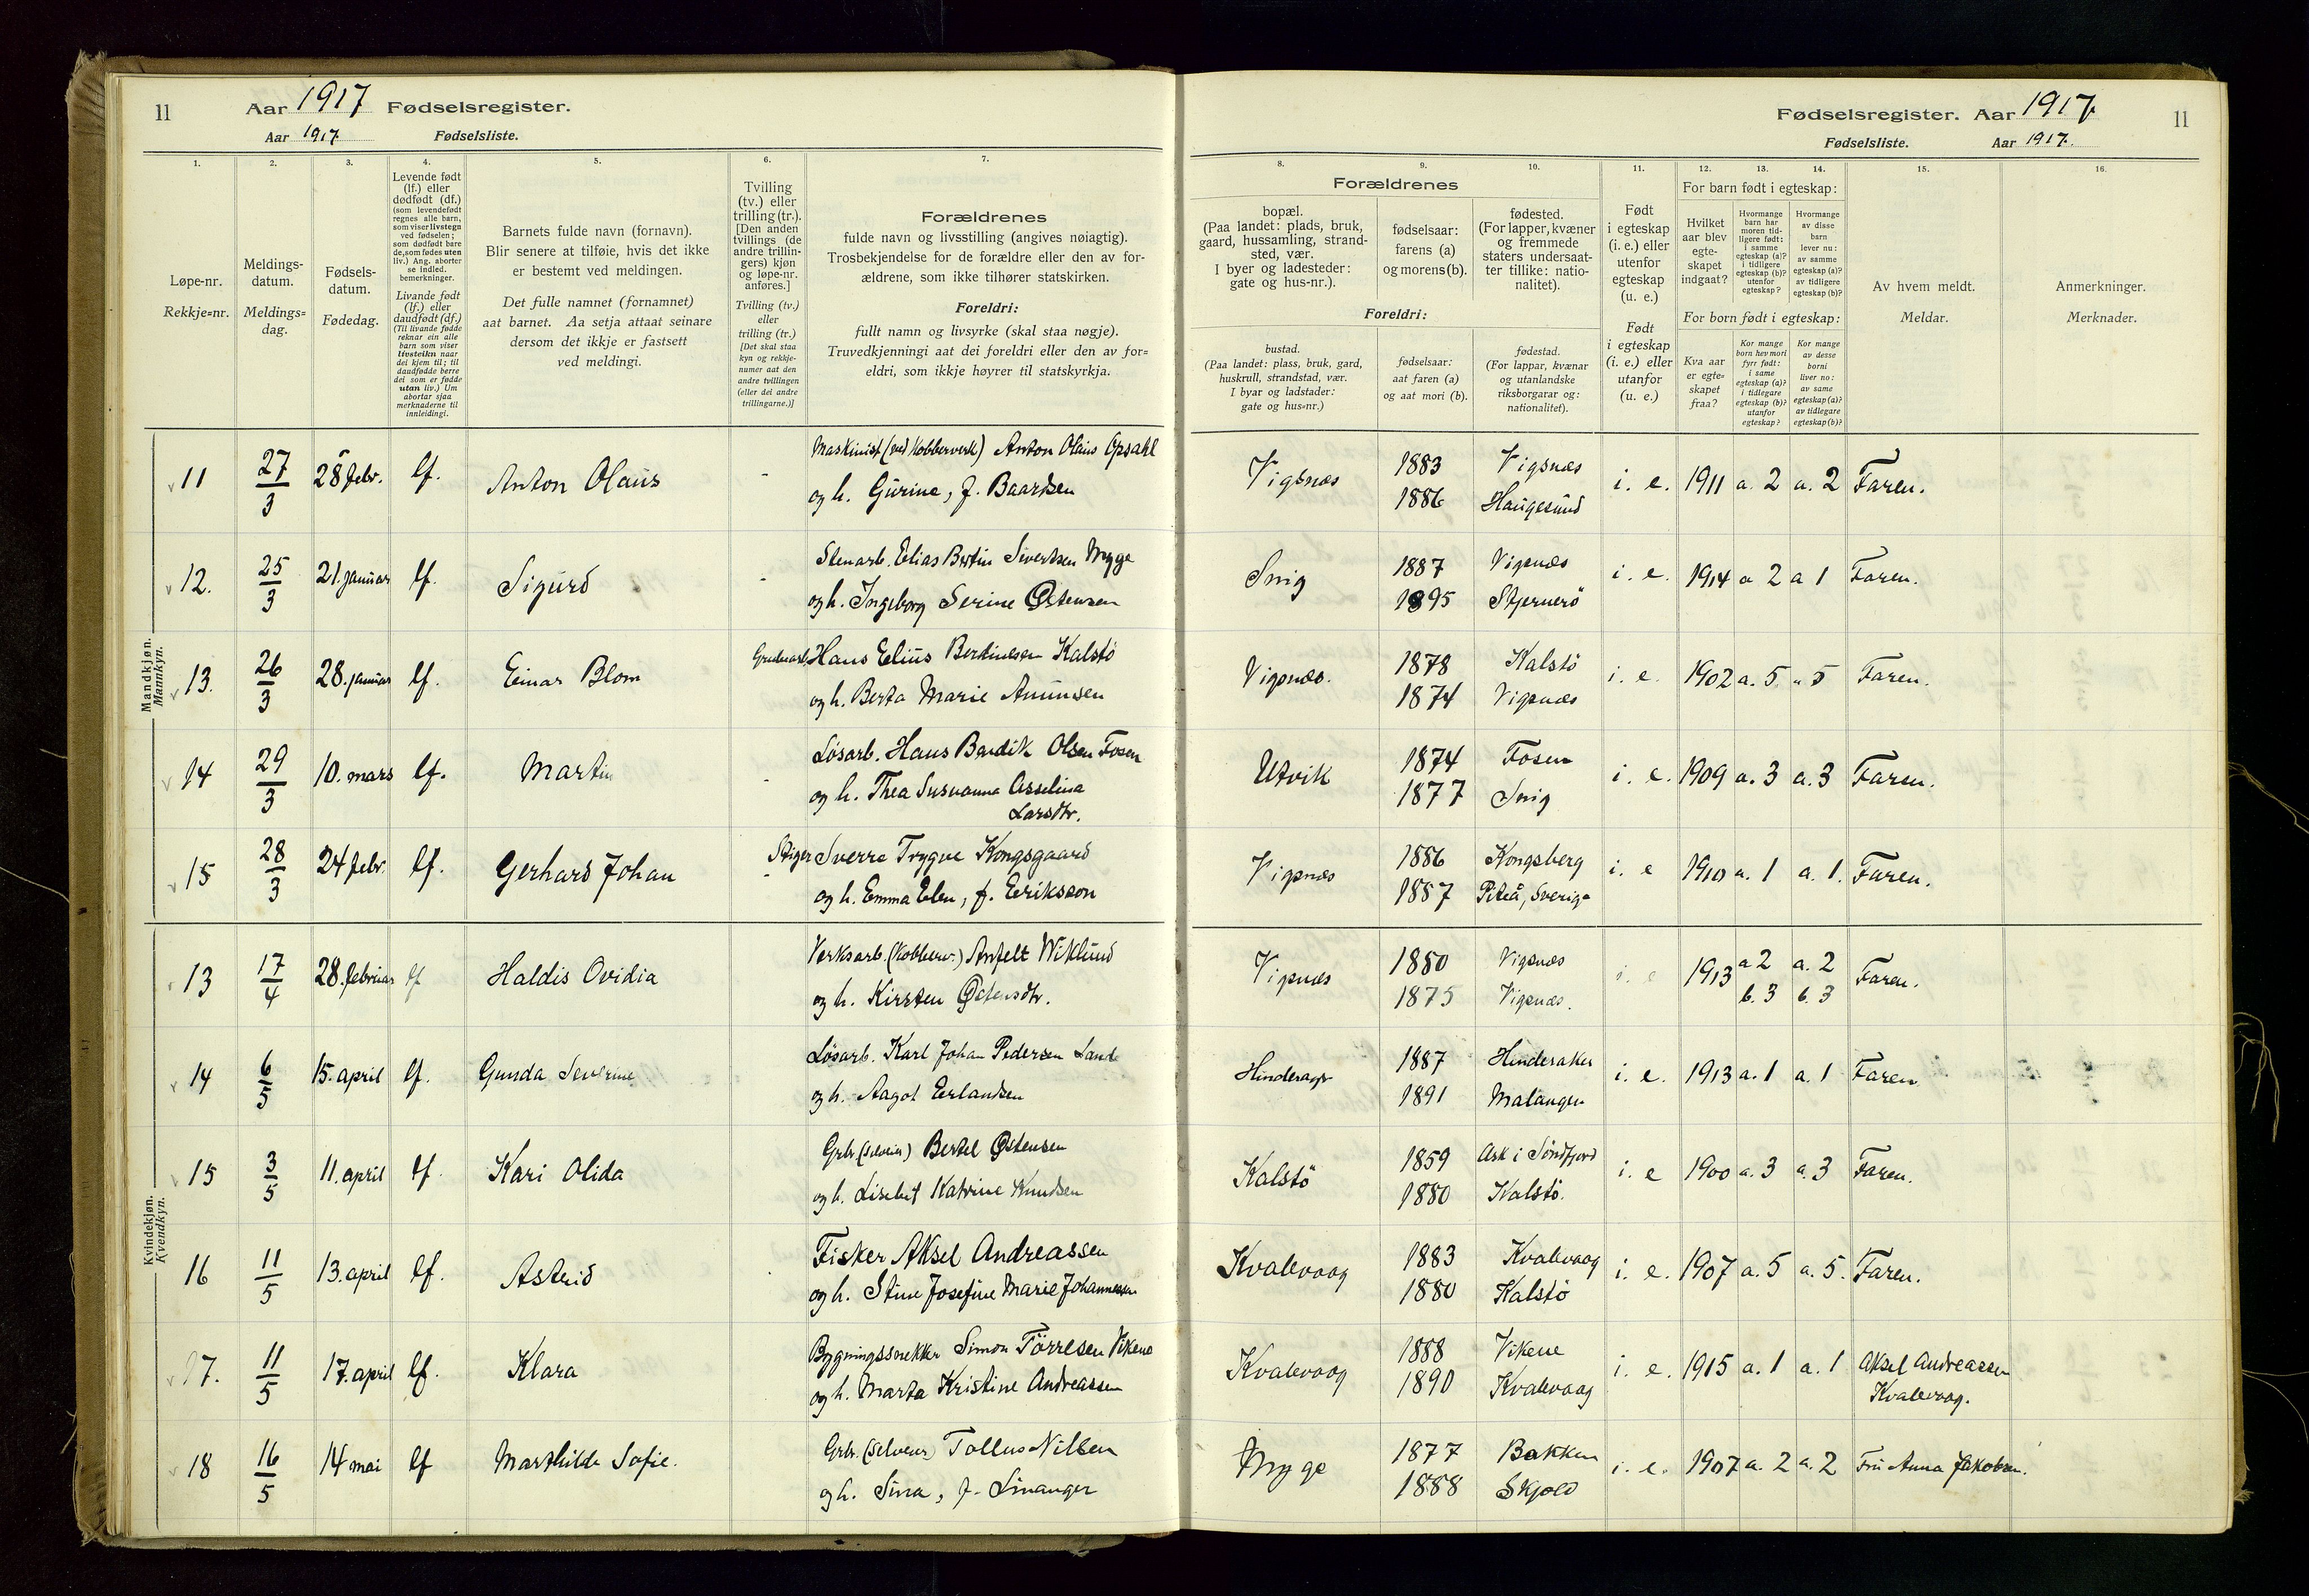 11 Aar 1917 Fødselsregister.
Aar 1917. Fødselsliste.
1. 2. 3. 4. 5. 6. 7.
Løpe-nr.
Rekkje=nr.
Meldings-
datum.
Meldings=
dag.
Fødsels-
datum.
Fødedag.
Levende født
(lf.) eller
dødfødt (df.)
(som levendefødt
regnes alle barn,
som viser livstegn
ved fødselen;
som dødfødt bare
de, som fødes uten
liv.) Ang. aborter
se indled.
bemerkninger.
Livande født
(lf.) eller
daudfødt (df.)
(Til livande fødde
reknar ein alle
barn som viser
livsteikn naar
dei kjem til; til
daudfødde berre
dei som er fødde
utan liv.) Um
abortar sjaa
merknaderne til
innleidingi.
Barnets fulde navn (fornavn).
Blir senere at tilføie, hvis det ikke
er bestemt ved meldingen.
Det fulle namnet (fornamnet)
aat barnet. Aa setja attaat seinare
dersom det ikkje er fastsett
ved meldingi.
Tvilling
(tv.) eller
trilling (tr.).
[Den anden
tvillings (de
andre trillin-
gers) kjøn
og løpe-nr.
anføres.]
Tvilling (tv.)
eller
trilling (tr.)
[Det skal staa
kyn og rekkje-
numer aat den
andre tvillingen
(eller dei andre
trillingarne.)]
Forældrenes
fulde navn og livsstilling (angives nøiagtig).
Trosbekjendelse for de forældre eller den av for-
ældrene, som ikke tilhører statskirken.
Foreldri:
fullt namn og livsyrke (skal staa nøgje).
Truvedkjenningi aat dei foreldri eller den av for=
eldri, som ikkje høyrer til statskyrkja.
Mandkjøn.
Mannkyn.
11 27/3 28 febr. lf. Anton Olaus - Maskinist (ved Kobberverk) Anton Olaus Opsahl
og h. Gurine, f. Baardsen
12. 25/3 21. januar lf. Sigurd - Stenarb. Elias Bertin Sivertsen Myge
og h. Ingeborg Serine Østensen
13. 26/3 28. januar lf. Einar Blom Grubearb. Hans Elius Bertinesen Kalstö
og h. Berta Marie Amunsen
14 29/3 10. mars lf. Martin - Løsarb. Hans Bendik Olsen Fosen
og h. Thea Susvanna Asselina
Larsdtr.
15 28/3 24 febr. lf. Gerhard Johan Stiger Sverre Trygve Kongsgaard
og h. Emma Elen, f. Eeriksson
Kvindekjøn.
Kvendkyn.
13 17/4 28. februar lf Haldis Ovidia Verksarb. (Kobberv.) Anfelt Wiklund
og h. Kirsten Østensdtr.
14 6/5 15. april lf. Gunda Severine Løsarb. Karl Johan Pedersen Lande
og h. Aagot Eerlandsen
15 3/5 11. april lf. Kari Olida Grbr. (selveier) Bertel Østensen
og h. Lisebet Katrine Knudsen
16 11/5 13. april lf. Astrid Fisker Aksel Andreassen
og h. Stine Josefine Marie Johannessen
17. 11/5 17. april lf. Klara Bygningssnekker Simon Törresen Vikene
og h. Marta Kristine Andreassen
18 16/5 14 mai lf Marthilde Sofie. Grbr. (selveier) Nilsen
og h. Sina, f.
Fødselsregister. Aar 1917. 11
Fødselsliste. Aar 1917.
8. 9. 10. 11. 12. 13. 14. 15. 16.
Forældrenes
bopæl.
(Paa landet: plads, bruk,
gaard, hussamling, strand-
sted, vær.
I byer og ladesteder:
gate og hus-nr.).
fødselsaar:
farens (a)
og morens (b).
fødested.
(For lapper, kvæner
og fremmede
staters undersaat-
ter tillike: natio-
nalitet).
Foreldri:
bustad.
(Paa landet: plass, bruk, gard,
huskrull, strandstad, vær.
I byar og ladstader:
gate og hus=nr.)
fødselsaar:
aat faren (a)
og aat mori (b).
fødestad.
(For lappar, kvænar
og utanlandske
riksborgarar og:
nationalitet).
Født
i egteskap
(i. e.) eller
utenfor
egteskap
(u. e.)
Født
i egteskap
(i. e.) eller
utanfor
(u. e.)
For barn født i egteskap:
Hvilket
aar blev
egte-
skapet
indgaat?
Hvormange
barn har
moren tid-
ligere født:
i samme
egteskap (a)?
i tidligere
egteskap (b)?
utenfor
egteskap?
Hvormange
av disse
barn
lever nu:
av samme
egteskap (a)?
av tidligere
egteskap (b)?
For born født i egteskap:
Kva aar
er egte=
skapet
fraa?
Kor mange
born hev mori
fyrr født:
i same
egteskap (a)?
i tidlegare
egteskap (b)?
utanfor
egteskap?
Kor mange
av desse
borni
liver no:
av same
egteskap (a)?
av tidlegare
egteskap (b)?
Av hvem meldt.
Meldar.
Anmerkninger.
Merknader.
Vigsnæs 1883 Vigsnæs i. e. 1911 a. 2 a. 2 Faren.
1886 Haugesund
Snig 1887 Vigsnæs i. e. 1914 a 2 a 1 Faren.
1895 Stjernerö
Vigsnæs. 1878 Kalstö i. e. 1902 a. 5 " 5 Faren.
1874 Vigsnæs
Utvik 1874 Fosen i. e. 1909 a. 3 a. 3 Faren.
1877 Snig
Vigsnæs 1886 Kongsberg i. e 1910 a. 1 a. 1. Faren.
1887 Piteå, Sverige
Vigsnæs 1880 Vigsnæs i. e 1913 a 2 a. 2 Faren.
1875 Vigsnæs. b. 3 b. 3
1887 Hinderaker i. e. 1913 a. 1 a. 1 Faren
1891 Malangen
Kalstö 1859 Ask i Söndfjord i. e 1900 a. 3 a. 3 Faren.
1880 Kalstö.
Kvalevaag 1883 Kvalevaag i. e. 1907 a. 5 a. 5. Faren.
1880 Kalstö
Kvalevaag 1888 Vikene i. e. 1915 a. 1 a. 1 Aksel Andreassen
1890 Kvalevaag Kvalevaag.
Myge 1877 Bakken i. e. 1907 a. 2 a. 2 Fru Anna Jakobsen.
1888 Skjold